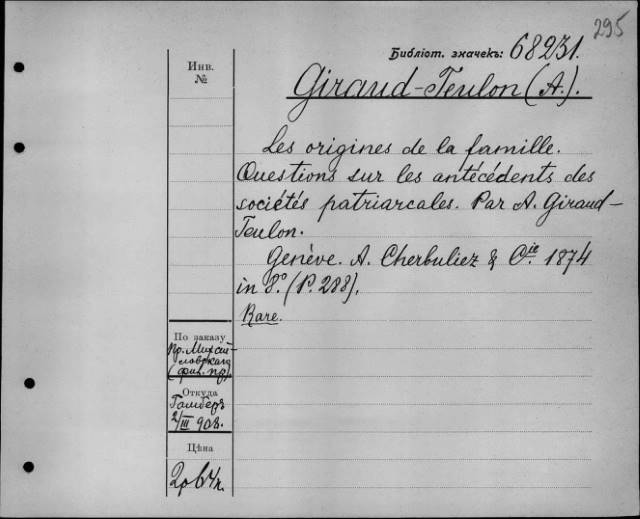 295
Библіот. значекъ: 68231.
Инв.
№
Giraud-Teulon (A.).
Les origines de la famille.
Questions sur les antécédents des
sociétés patriarcales. Par A. Giraud-
Teulon.
Genève. A. Cherbuliez & Cie. 1874
in 8.º (P. 288).
Rare.
По заказу
Пр. Михай-
ловскаго
Откуда
Гамберъ
2/III 903.
Цѣна